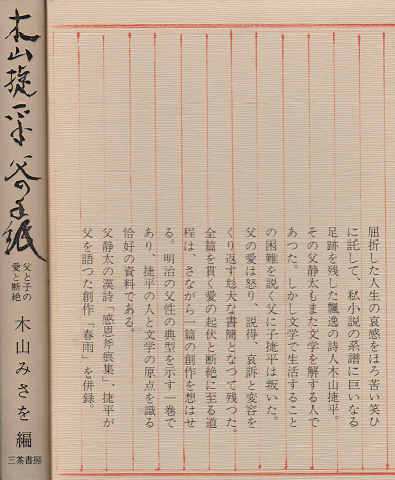 木山捷平 父の手紙
父と子の
愛と断絶
木山みさを 編
三茶書房
屈折した人生の哀感をほろ苦い笑ひ
に託して、私小説の系譜に巨いなる
足跡を残した飄逸の詩人木山捷平。
その父静太もまた文学を解する人で
あつた。しかし文学で生活すること
の困難を説く父に子捷平は叛いた。
父の愛は怒り、説得、哀訴と変容を
くり返す尨大な書簡となつて残つた。
全篇を貫く愛の起伏と断絶に至る道
程は、さながら一篇の創作を想はせ
る。明治の父性の典型を示す一巻で
あり、捷平の人と文学の原点を識る
恰好の資料である。
父静太の漢詩「感恩斧痕集」、捷平が
父を語つた創作「春雨」を併録。